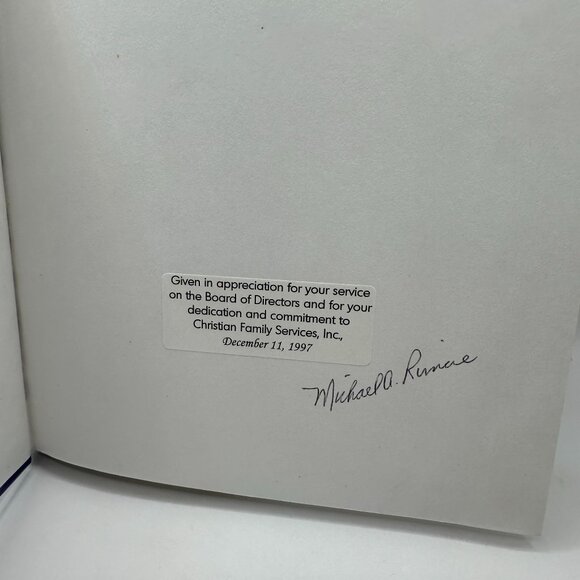 Given in appreciation for your service
on the Board of Directors and for your
dedication and commitment to
Christian Family Services, Inc.,
December 11, 1997
Michael A.